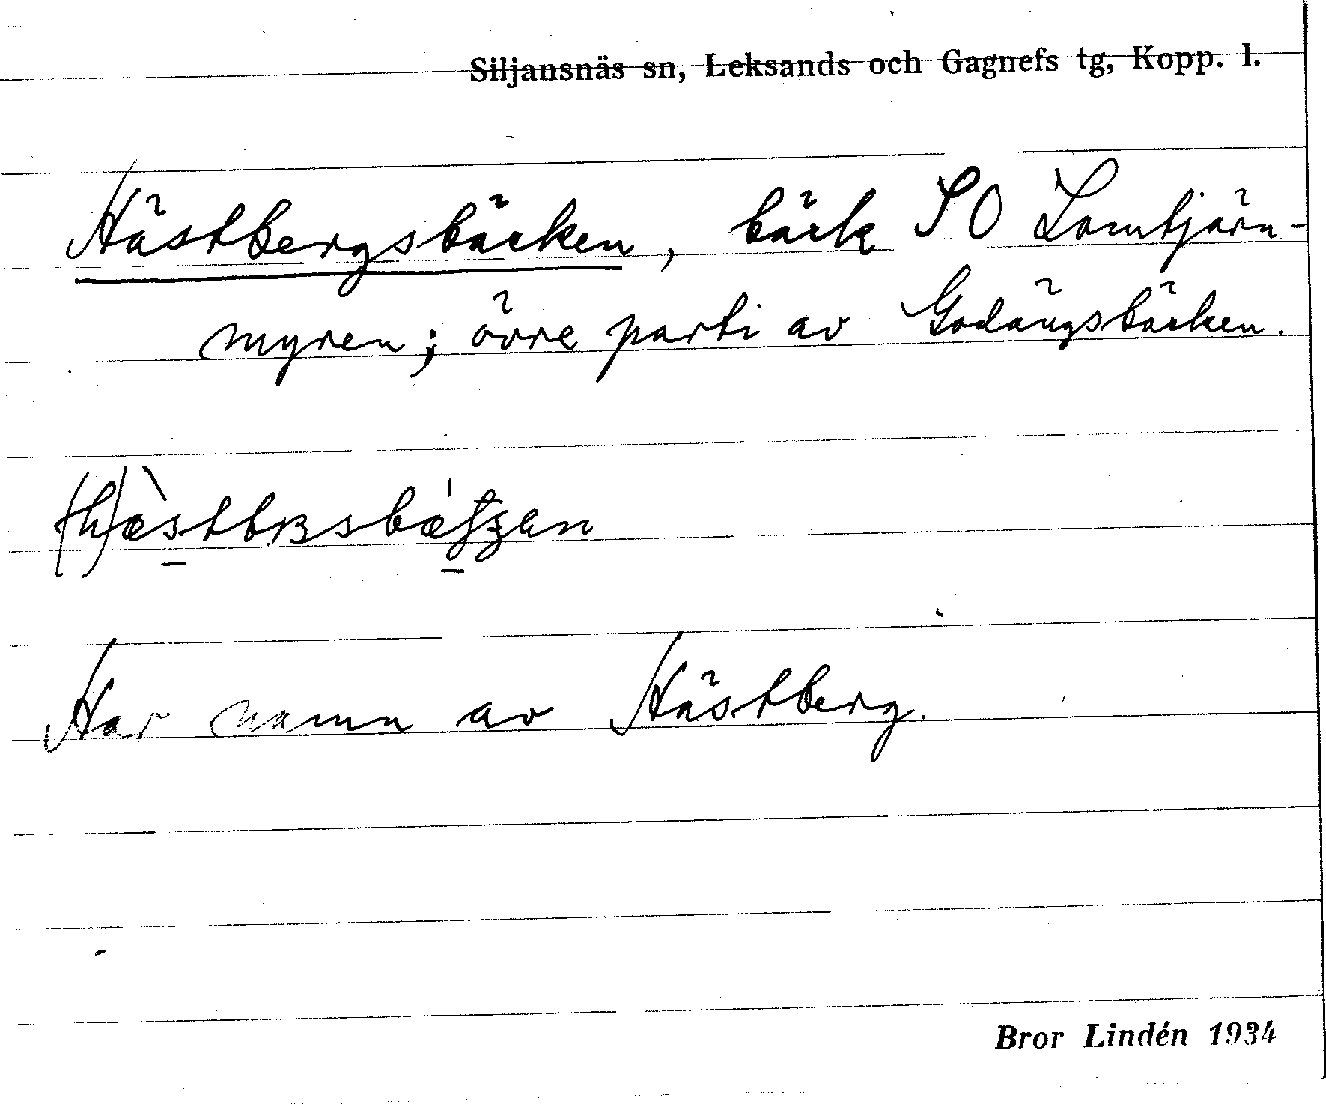 Siljansnäs sn, Leksands och Gagnefs tg, Kopp. l.
Hästbergsbäcken, bäck SO Lomtjärn-
myren; övre parti av Godängsbäcken.
Har namn av Hästberg.
Bror Lindén 1934